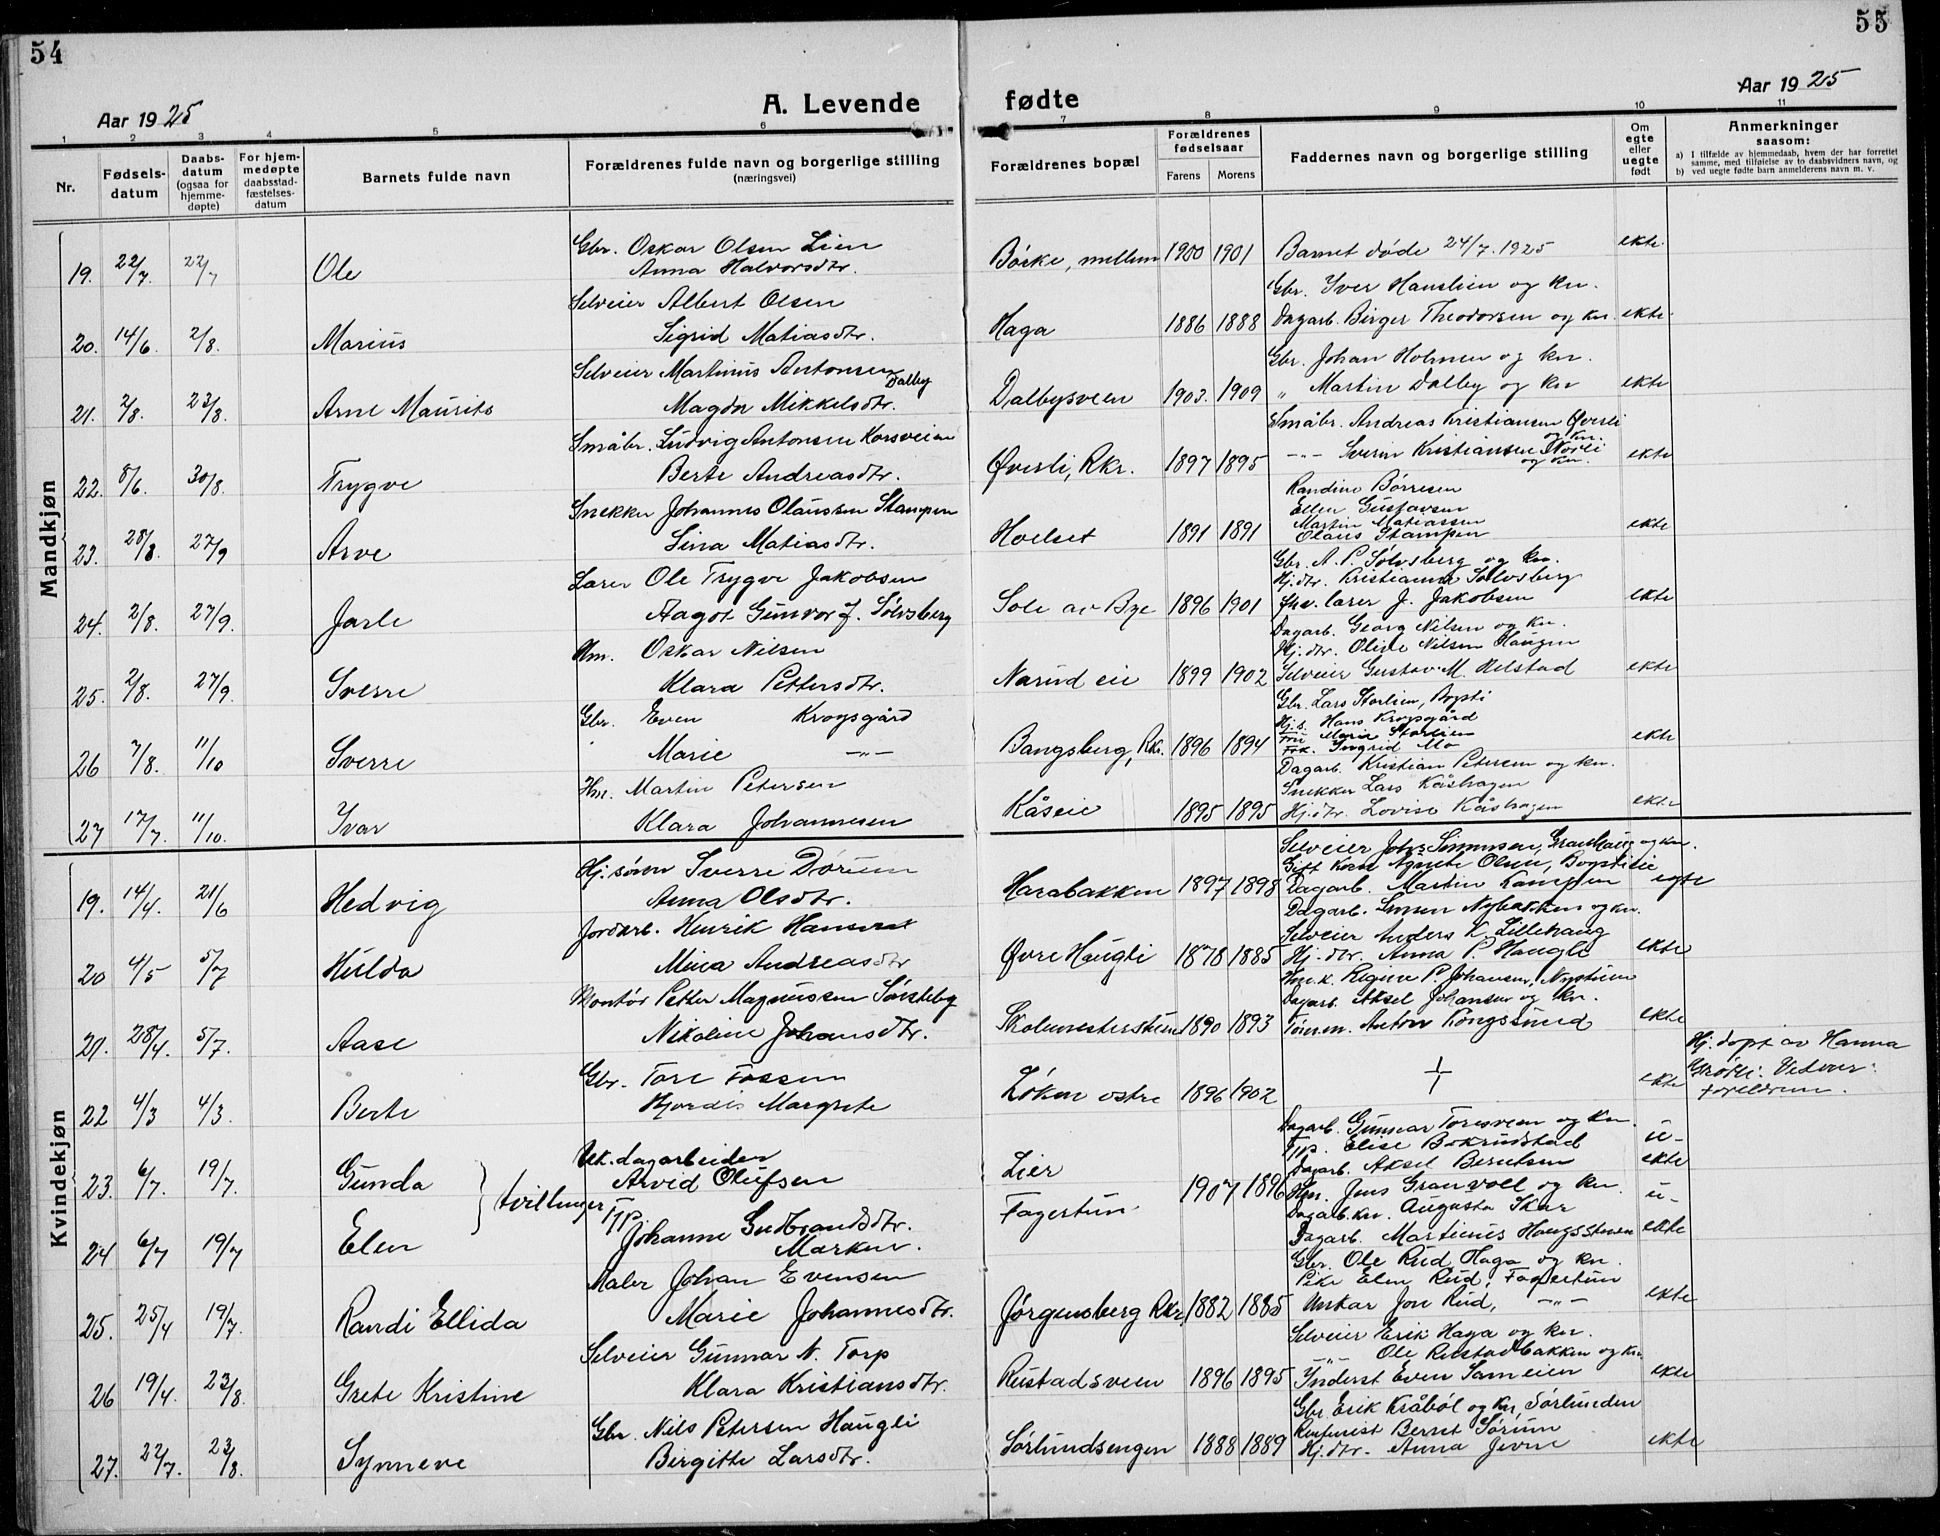 54
55
Aar 1925
A. Levende fødte
Aar 1925
1 2 3 4 5 6 7 8 9 10 11
Nr.
Fødsels-datum
Daabs-datum (ogsaa for hjemme-døpte)
For hjem-medøpte daabsstad-fæstelses-datum
Barnets fulde navn
Forældrenes fulde navn og borgerlige stilling (næringsvei)
Forældrenes bopæl
Forældrenes fødselsaar
Farens Morens
Faddernes navn og borgerlige stilling
Om egte eller uegte født
Anmerkninger saasom:
a) I tilfælde av hjemmedaab, hvem der har forrettet samme, med tilføielse av to daabsvidners navn, og
b) ved uegte fødte barn anmelderens navn m. v.
Mandkjøn
19. 22/7. 22/7 Ole
Gbr. Oskar Olsen Lien
Anna Halvorsdtr.
Børke, mellem 1900 1901 Barnet døde 24/7. 1925 ekte
20. 14/6. 2/8. Marius
Selveier Albert Olsen
Sigrid Matiasdtr.
Haga 1886 1888
Gbr. Iver Hanslien og kn.
Dagarb. Birger Theodorsen og kn. ekte
21. 2/8. 23/8. Arne Maurits
Selveier Martinus Antonsen Dalby
Magda Mikkelsdtr.
Dalbysveen 1903. 1909
Gbr. Johan Holmen og kn.
" Martin Dalby og kn ekte
22. 8/6. 30/8. Trygve
Småbr. Ludvig Antonsen Korsveien
Berte Andreasdtr.
Øverli, Rkr. 1897 1895
Småbr. Andreas Kristiansen Øverli og kn.
-"- Sverin Kristiansen Nordli og kn. ekte
23. 28/8. 27/9 Arve
Snekker Johannes Olaussen Stampen
Lina Matiasdtr.
Hoelset 1891 1891
Randine Børresen
Ellen Gustavsen
Martin Matiassen
Olaus Stampen ekte
24. 2/8. 27/9. Jarle
Lærer Ole Trygve Jakobsen
Aagot Gunvor f. Sølvsberg
Sole av Bye 1896 1901
Gbr. A. P. Sølvsberg og kn.
Hj.dtr. Kristianna Sølvsberg
fhv. lærer J. Jakobsen ekte
25. 2/8. 27/9. Sverre
Hm. Oskar Nilsen
Klara Pettersdtr.
Narud eie 1899 1902
Dagarb. Georg Nilsen og kn.
Hj.dtr. Olive Nilsen Haugen
Selveier Gustav M. Helstad ekte
26 7/8. 11/10 Sverre
Gbr. Even Krogsgård
Marie -"-
Bangsberg, Rkr. 1896 1894
Gbr. Lars Storlien,
Hj.s. Hans Krogsgård
Fru Marie Storlien
Frk. Ingrid Mo ekte
27 17/7. 11/10. Ivar
Hm. Martin Petersen
Klara Johannesen
Kåseie 1895 1895
Dagarb. Kristian Petersen og kn.
Snekker Lars Kåshagen
Hj.dtr. Lovise Kåshagen ekte
Kvindekjøn
19. 14/4. 21/6 Hedvig
Hj.sønn Sverre Dørum
Anna Olsdtr.
Harabakken 1897 1898
Selveier Johs Simensen, Granhaug og kn.
Gift kone Agnete Olsen,
Dagarb. Martin Kampen egte
20 4/5 5/7 Hulda
Jordarb. Henrik Hanserat
Mina Andreasdtr
Øvre Haugli 1878 1885
Dagarb. Simen Nybakken og kn.
Selveier Anders K. Lillehaug
Hj.dtr. Anna P. Haugli ekte
21. 28/4. 5/7. Aase
Montør Petter Magnussen Sørsteby
Nikoline Johansdtr.
Skolemestersteen 1890 1893
Hm.k. Regine P. Johansen, Nystuen
Dagarb. Aksel Johansen og kn.
Tømm. Anton Kongssund ekte
22 4/3 4/3. Berte
Gbr. Tore Fossum
Hjørdis Margrete
Løken østre 1896 1902 + ekte
Hj. døpt av Hanna Grøtli. Vidner: foreldrene.
23. 6/7. 19/7. Gunda
24 6/7 19/7 Elen
} tvillinger
Uk. dagarbeider
Arvid Olufsen
Tjp. Johanne Gudbrandsdtr. Marken.
Lier
Fagertun 1907 1896
Dagarb. Gunnar Toresveen og kn.
Tjp. Elise Bokrudstad
Dagarb. Aksel Berntsen
u-ekte
Hm. Jens Granvoll og kn.
Dagarb.kn. Augusta Skar
Dagarb. Martinus Haugssteen
u-ekte
25. 25/4 19/7. Randi Ellida
Maler Johan Evensen
Marie Johannesdtr.
Jørgensberg Rkr 1882 1885
Gbr. Ole Rud Haga og kn.
Pike Elen Rud, Fagertun
Unkar Jon Rud, -"- ekte
26 19/4. 23/8. Grete Kristine
Selveier Gunnar N. Torp
Klara Kristiansdtr.
Rustadsveen 1896 1895
Selveier Erik Haga og kn.
-"- Ole Rustadbakken og kn
Inderst Even Sameien ekte
27. 22/7. 23/8. Synneve
Gbr. Nils Petersen Haugli
Birgitte Larsdtr.
Sørlundsengen 1888 1889
Gbr. Erik Kråbøl og kn, Sørlunden
Bernt Sørum
Hj.dtr. Anna Jevne ekte